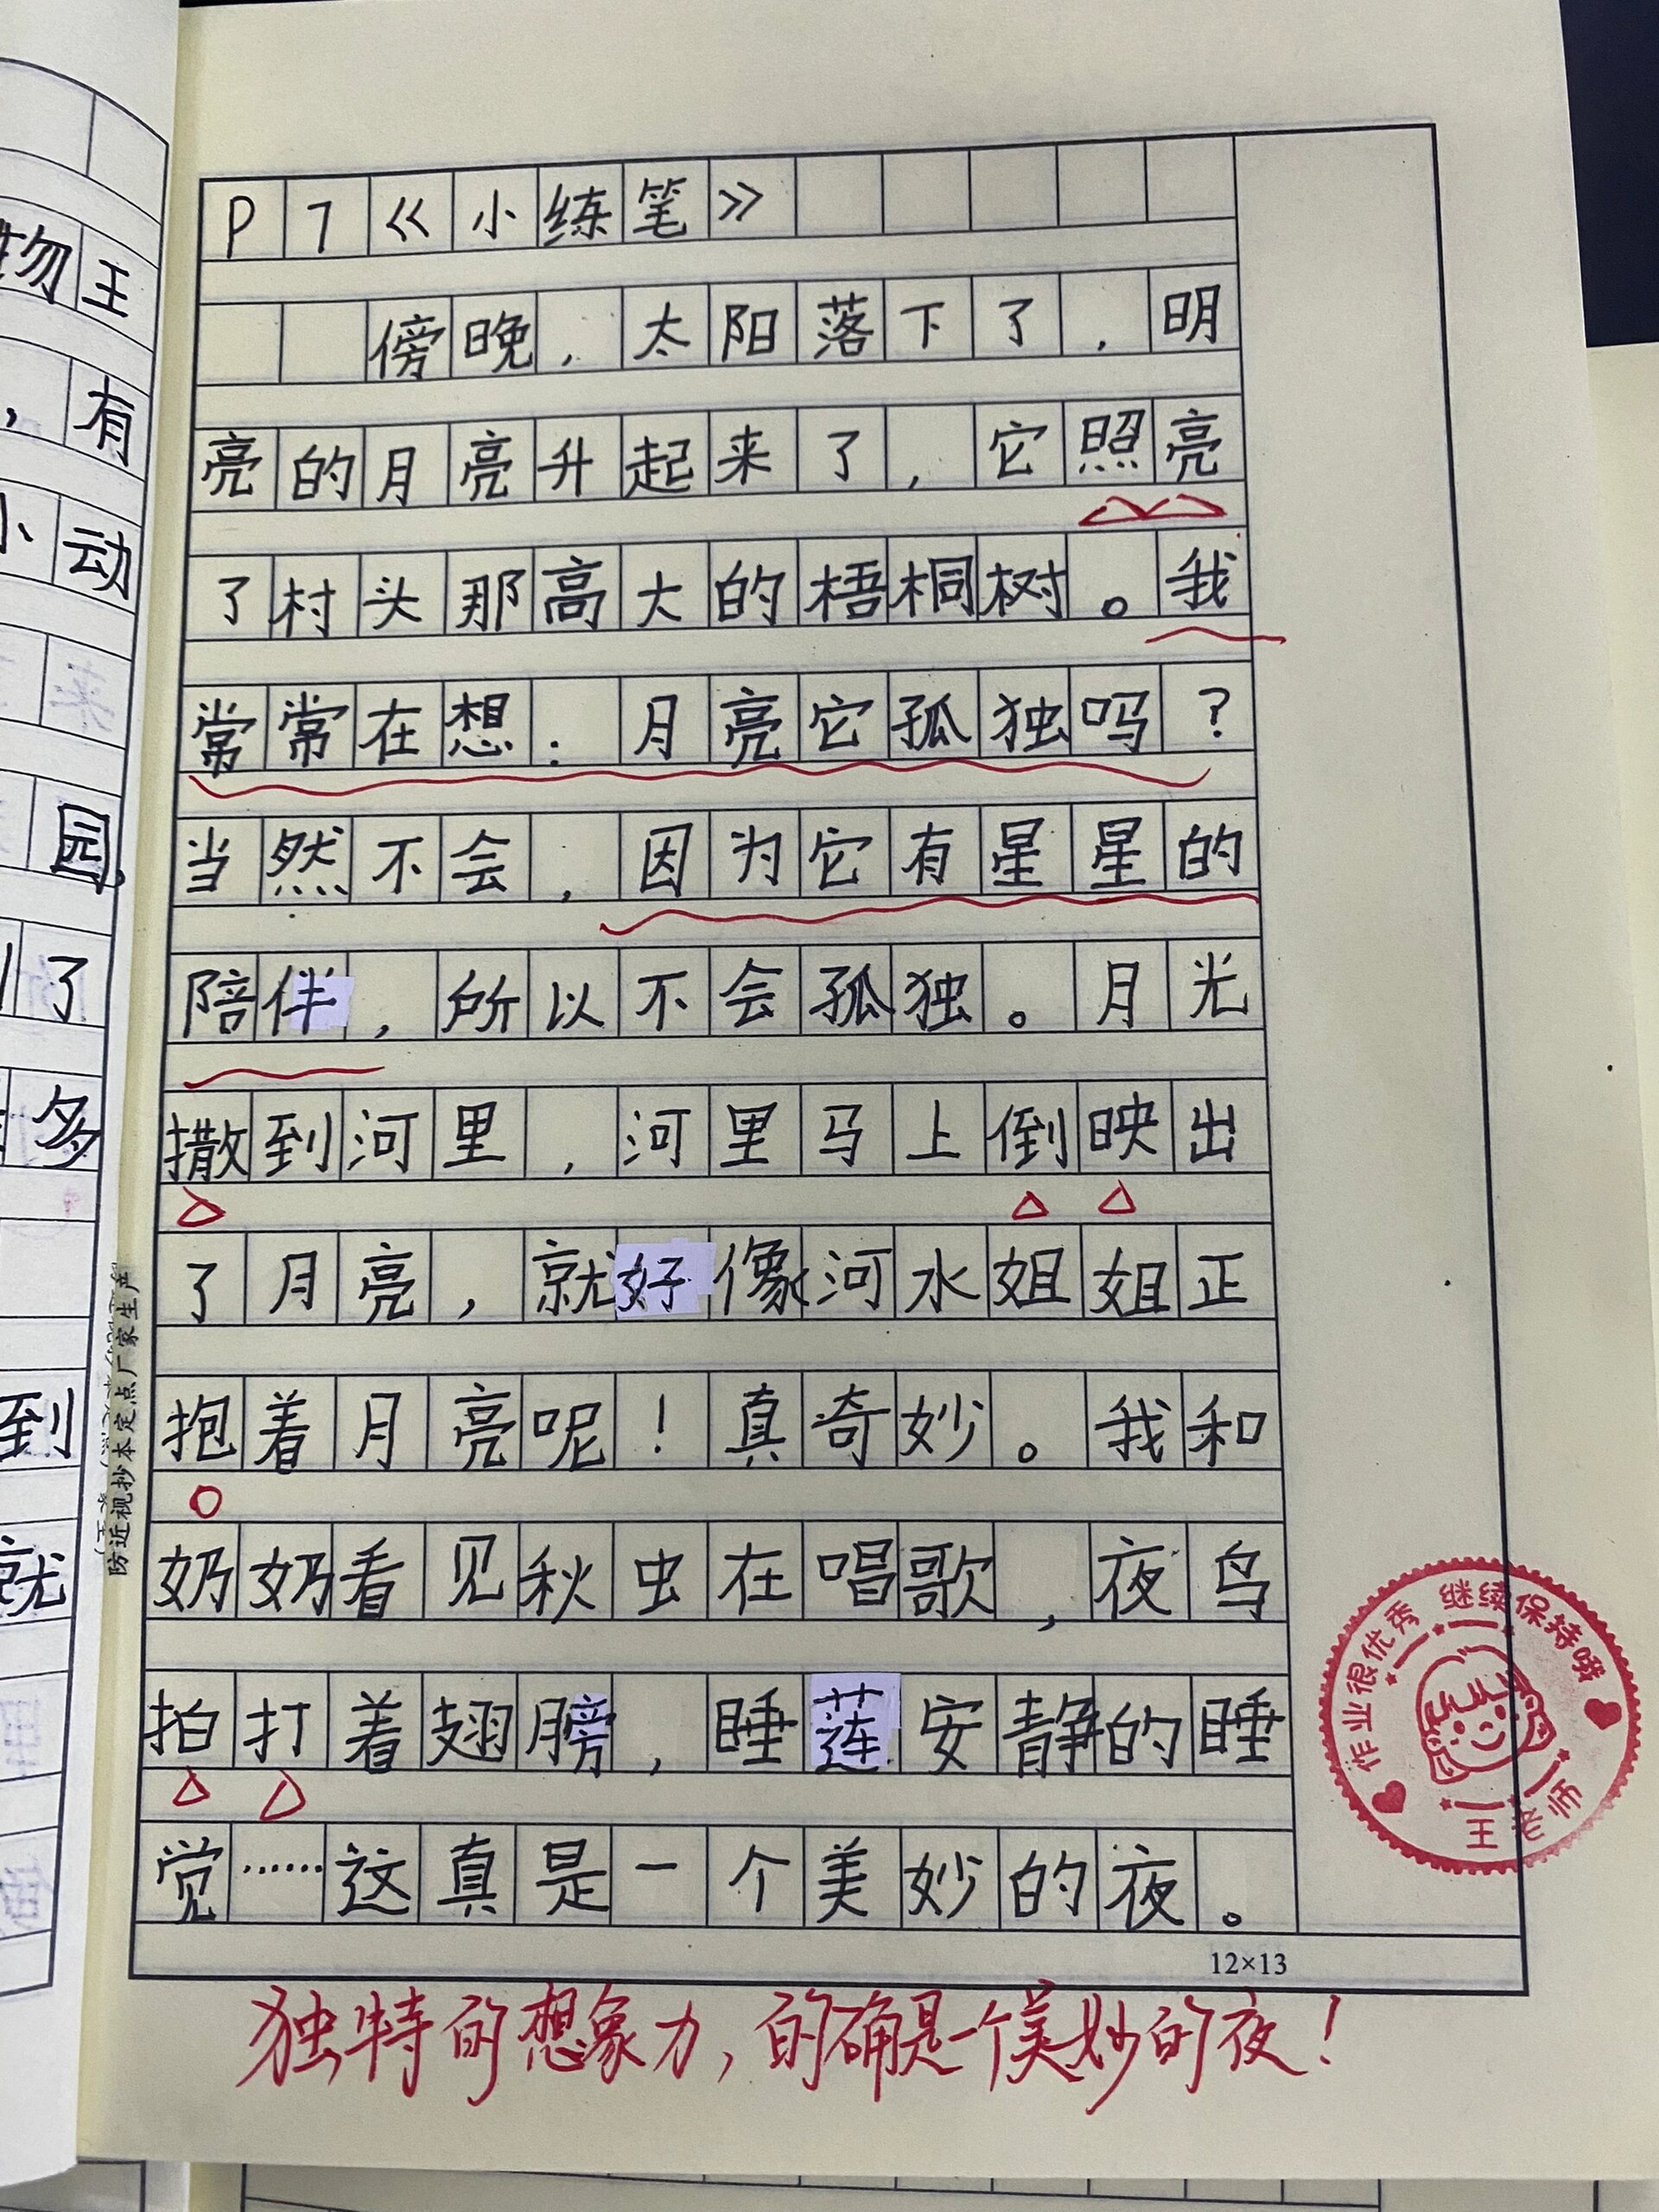 P7《小练笔》
傍晚，太阳落下了，明
亮的月亮升起来了，它照亮
了村头那高大的梧桐树。我
常常在想：月亮它孤独吗？
当然不会，因为它有星星的
陪伴，所以不会孤独。月光
撒到河里，河里马上倒映出
了月亮，就好像河水姐姐正
抱着月亮呢！真奇妙。我和
奶奶看见秋虫在唱歌，夜鸟
拍打着翅膀，睡莲安静的睡
觉……这真是一个美妙的夜。
12×13
独特的想象力，的确是一个美妙的夜！
作业很优秀 继续保持哦
王老师
物王
，有
小动
园
了
多
到
就
防近视抄本定点厂家生产